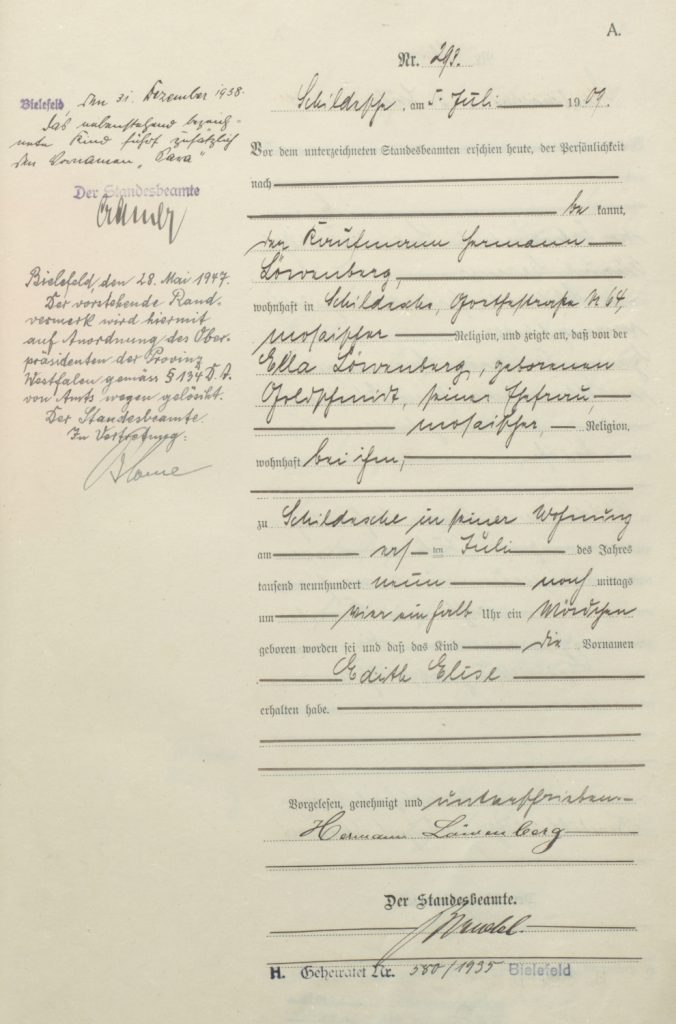 A.
Nr. 293.
Bielefeld, den 31. Dezember 1938.
Das nebenstehend bezeich-
nete Kind führt zusätzlich
den Vornamen „Sara“
Der Standesbeamte
Bielefeld, den 28. Mai 1947.
Der vorstehende Rand-
vermerk wird hiermit
auf Anordnung des Ober-
präsidenten der Provinz
Westfalen gemäss § 134 D.A.
von Amts wegen gelöscht.
Der Standesbeamte.
In Vertretung:
Schildesche, am 5. Juli 1909.
Vor dem unterzeichneten Standesbeamten erschien heute, der Persönlichkeit
nach
bekannt,
der Kaufmann Hermann
Löwenberg,
wohnhaft in Schildesche, Goethestraße № 64,
mosaischer Religion, und zeigte an, daß von der
Ella Löwenberg, geborenen
Goldschmidt, seiner Ehefrau,
mosaischer, Religion,
wohnhaft bei ihm,
zu Schildesche in seiner Wohnung
am ten Juli des Jahres
tausend neunhundert neun nach mittags
um vier ein halb Uhr ein Mädchen
geboren worden sei und daß das Kind die Vornamen
Edith Elise
erhalten habe.
Vorgelesen, genehmigt und unterschrieben.
Hermann Löwenberg
Der Standesbeamte.
H. Geheiratet Nr. 580/1935 Bielefeld